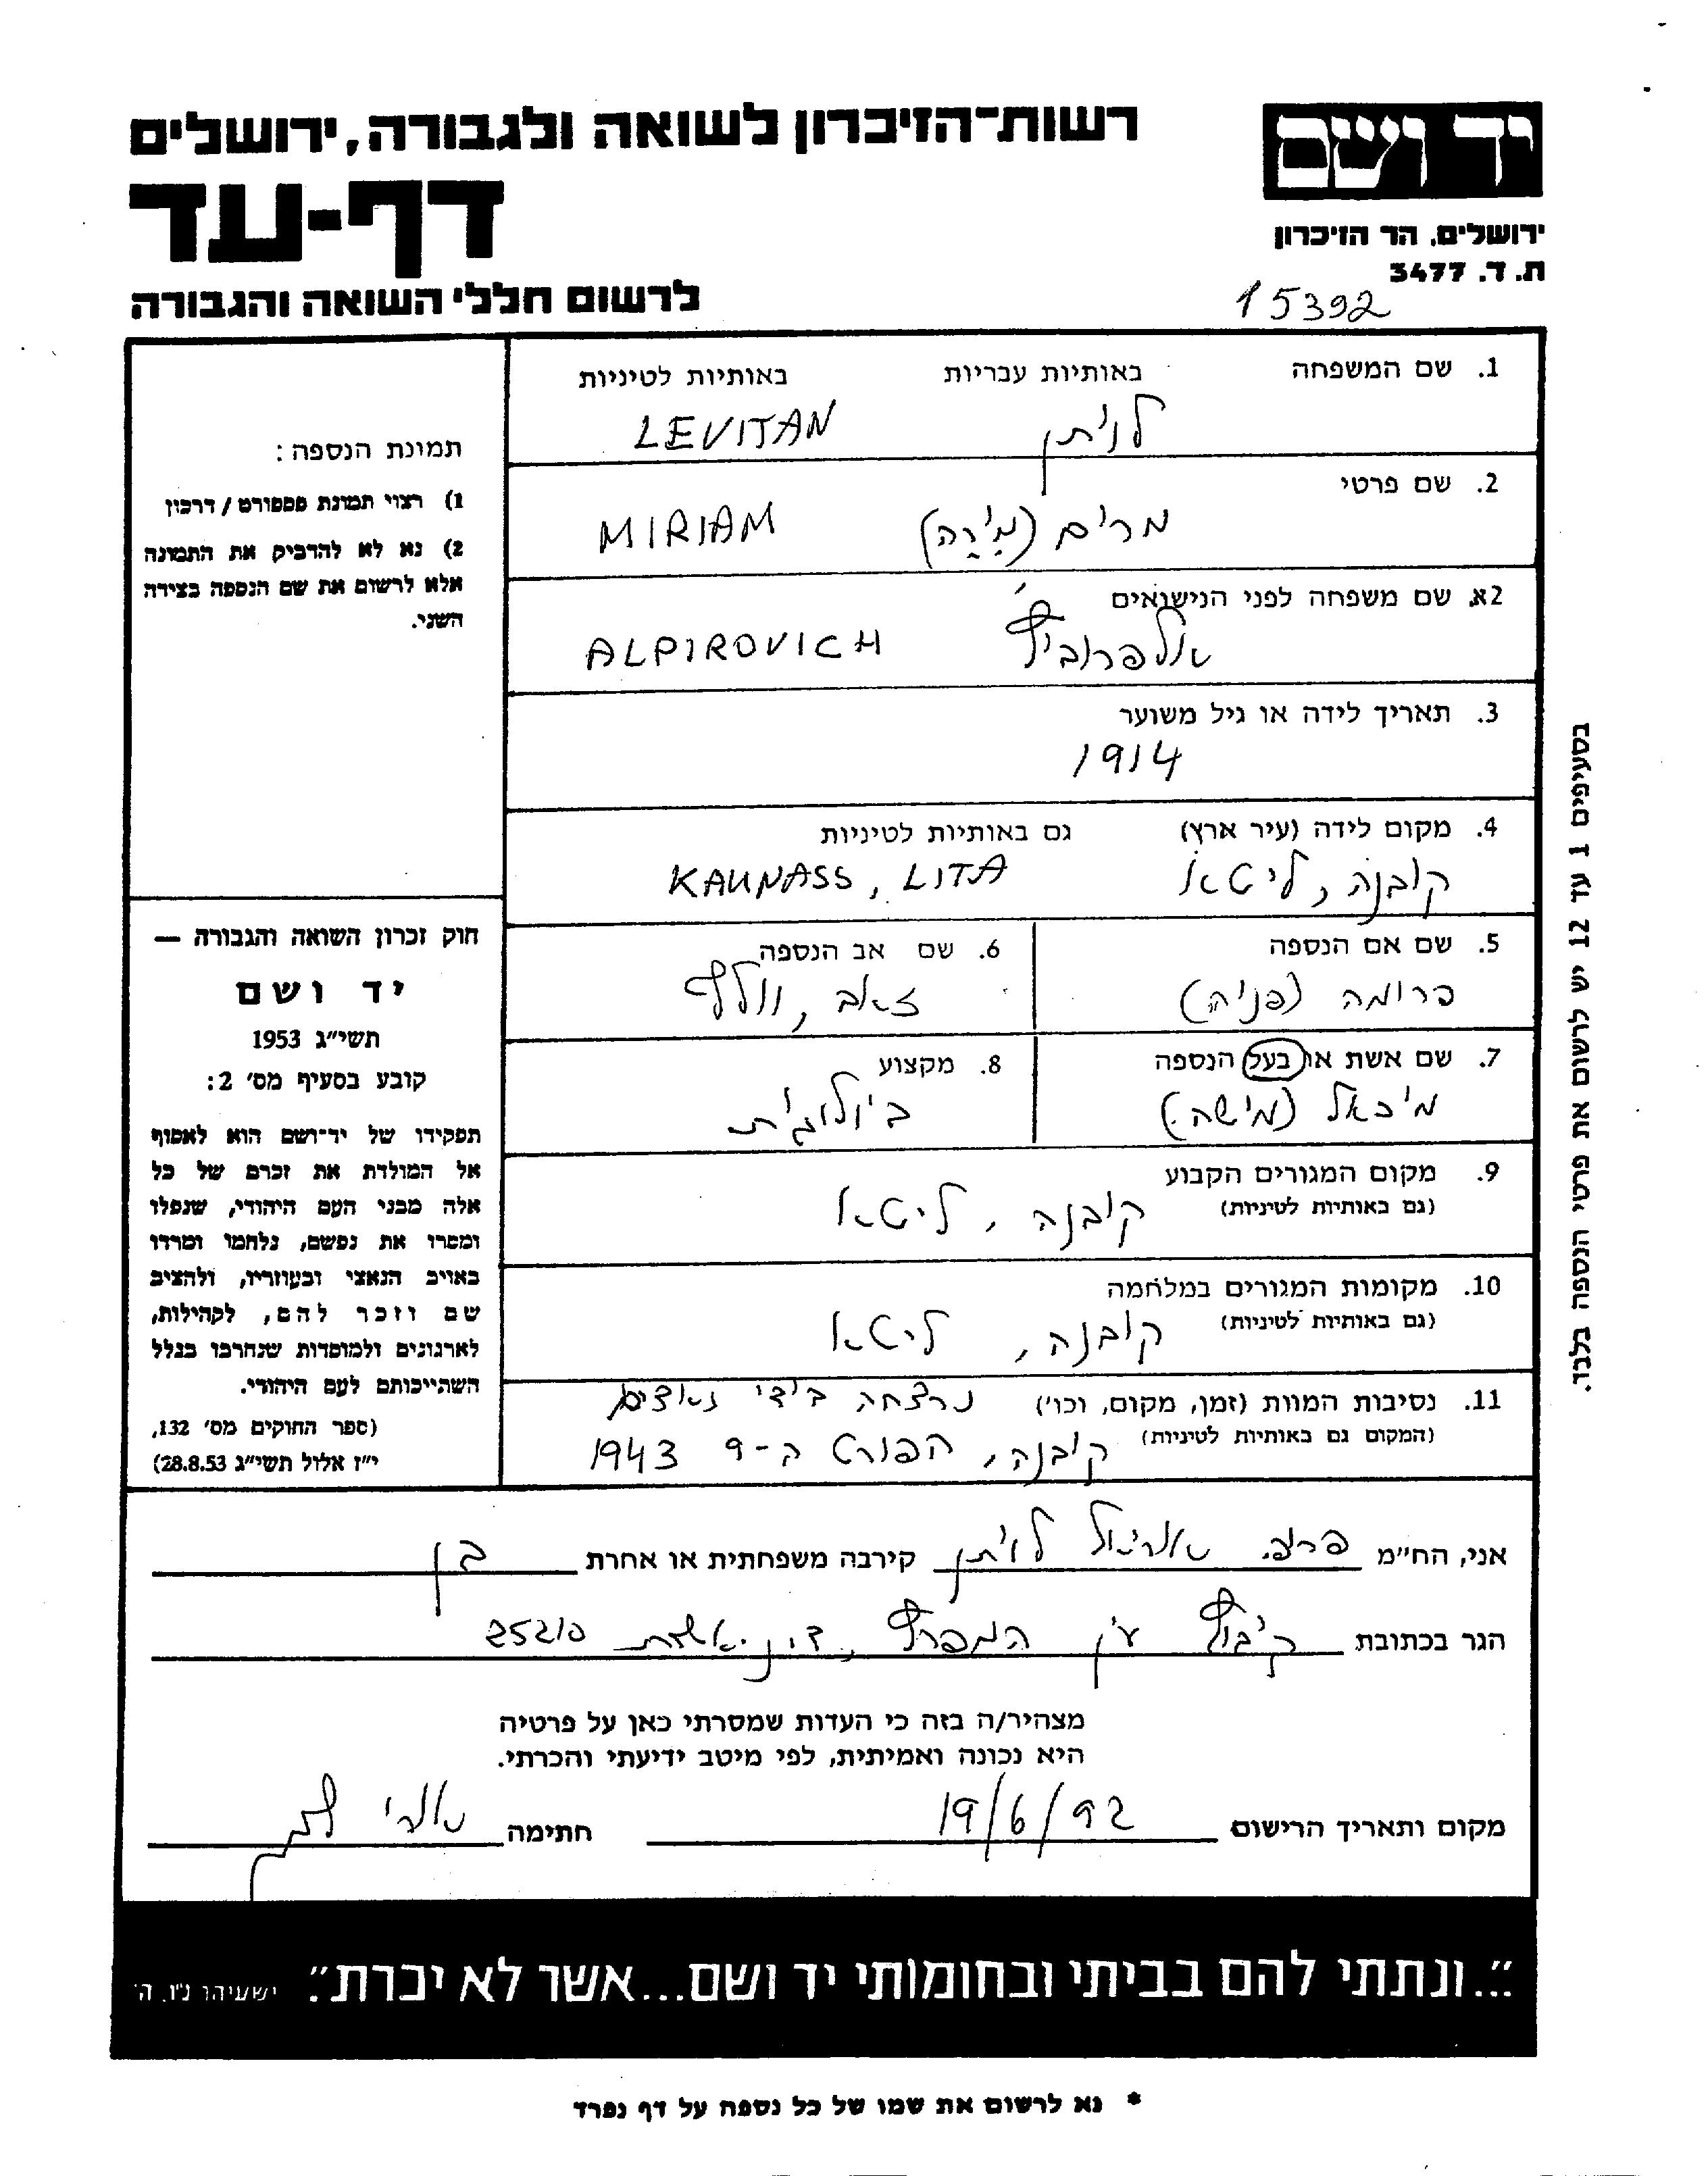 רשות-הזיכרון לשואה ולגבורה, ירושלים
דף-עד
לרשום חללי השואה והגבורה
יד ושם
ירושלים, הר הזיכרון
ת. ד. 3477
15392
1. שם המשפחה באותיות עבריות באותיות לטיניות
לויתן LEVITAN
2. שם פרטי
מרים (מִירַה) MIRIAM
2א. שם משפחה לפני הנישואים
אלפרוביץ' ALPIROVICH
3. תאריך לידה או גיל משוער
1914
4. מקום לידה (עיר ארץ) גם באותיות לטיניות
קובנה, ליטא KAUNASS, LITA
5. שם אם הנספה
פרומה (פניה)
6. שם אב הנספה
זאב, וולף
7. שם אשת או בעל הנספה
מיכאל (מישה)
8. מקצוע
ביולוגית
9. מקום המגורים הקבוע
(גם באותיות לטיניות)
קובנה, ליטא
10. מקומות המגורים במלחמה
(גם באותיות לטיניות)
קובנה, ליטא
11. נסיבות המוות (זמן, מקום, וכו') נרצחה בידי נאצים
(המקום גם באותיות לטיניות) קובנה, הפורט ה-9 1943
תמונת הנספה:
1) רצוי תמונת פספורט / דרכון
2) נא לא להדביק את התמונה
אלא לרשום את שם הנספה בצידה
השני.
חוק זכרון השואה והגבורה —
יד ושם
תשי"ג 1953
קובע בסעיף מס' 2:
תפקידו של יד-ושם הוא לאסוף
אל המולדת את זכרם של כל
אלה מבני העם היהודי, שנפלו
ומסרו את נפשם, נלחמו ומרדו
באויב הנאצי ובעוזריו, ולהציב
שם וזכר להם, לקהילות,
לארגונים ולמוסדות שנחרבו בגלל
השתייכותם לעם היהודי.
(ספר החוקים מס' 132,
י"ז אלול תשי"ג 28.8.53)
בסעיפים 1 עד 12 יש לרשום את פרטי הנספה בלבד.
אני, הח"מ פרופ. אוריאל לויתן קירבה משפחתית או אחרת בן
הגר בכתובת קיבוץ עין המפרץ, ד.נ. אשרת 25210
מצהיר/ה בזה כי העדות שמסרתי כאן על פרטיה
היא נכונה ואמיתית, לפי מיטב ידיעתי והכרתי.
מקום ותאריך הרישום 19/6/92 חתימה
"...ונתתי להם בביתי ובחומותי יד ושם...אשר לא יכרת". ישעיהו נ"ו, ה'
* נא לרשום את שמו של כל נספה על דף נפרד